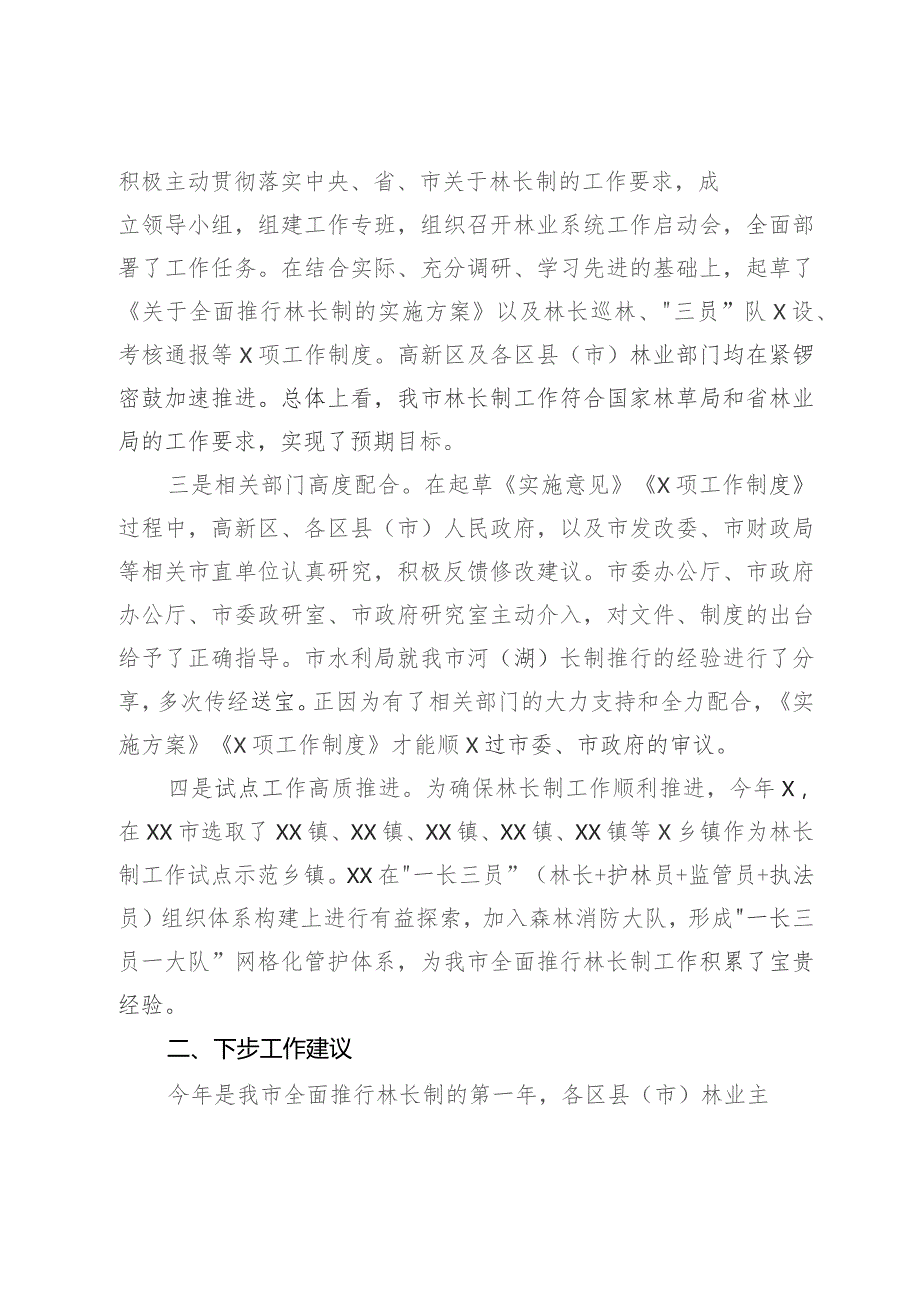 积极主动贯彻落实中央、省、市关于林长制的工作要求，成
立领导小组，组建工作专班，组织召开林业系统工作启动会，全面部
署了工作任务。在结合实际、充分调研、学习先进的基础上，起草了
《关于全面推行林长制的实施方案》以及林长巡林、"三员”队 X 设、
考核通报等 X 项工作制度。高新区及各区县（市）林业部门均在紧锣
密鼓加速推进。总体上看，我市林长制工作符合国家林草局和省林业
局的工作要求，实现了预期目标。
三是相关部门高度配合。在起草《实施意见》《X 项工作制度》
过程中，高新区、各区县（市）人民政府，以及市发改委、市财政局
等相关市直单位认真研究，积极反馈修改建议。市委办公厅、市政府
办公厅、市委政研室、市政府研究室主动介入，对文件、制度的出台
给予了正确指导。市水利局就我市河（湖）长制推行的经验进行了分
享，多次传经送宝。正因为有了相关部门的大力支持和全力配合，《实
施方案》《X 项工作制度》才能顺 X 过市委、市政府的审议。
四是试点工作高质推进。为确保林长制工作顺利推进，今年 X，
在 XX 市选取了 XX 镇、XX 镇、XX 镇、XX 镇、XX 镇等 X 乡镇作为林长
制工作试点示范乡镇。XX 在"一长三员”（林长+护林员+监管员+执法
员）组织体系构建上进行有益探索，加入森林消防大队，形成"一长三
员一大队”网格化管护体系，为我市全面推行林长制工作积累了宝贵
经验。
二、下步工作建议
今年是我市全面推行林长制的第一年，各区县（市）林业主